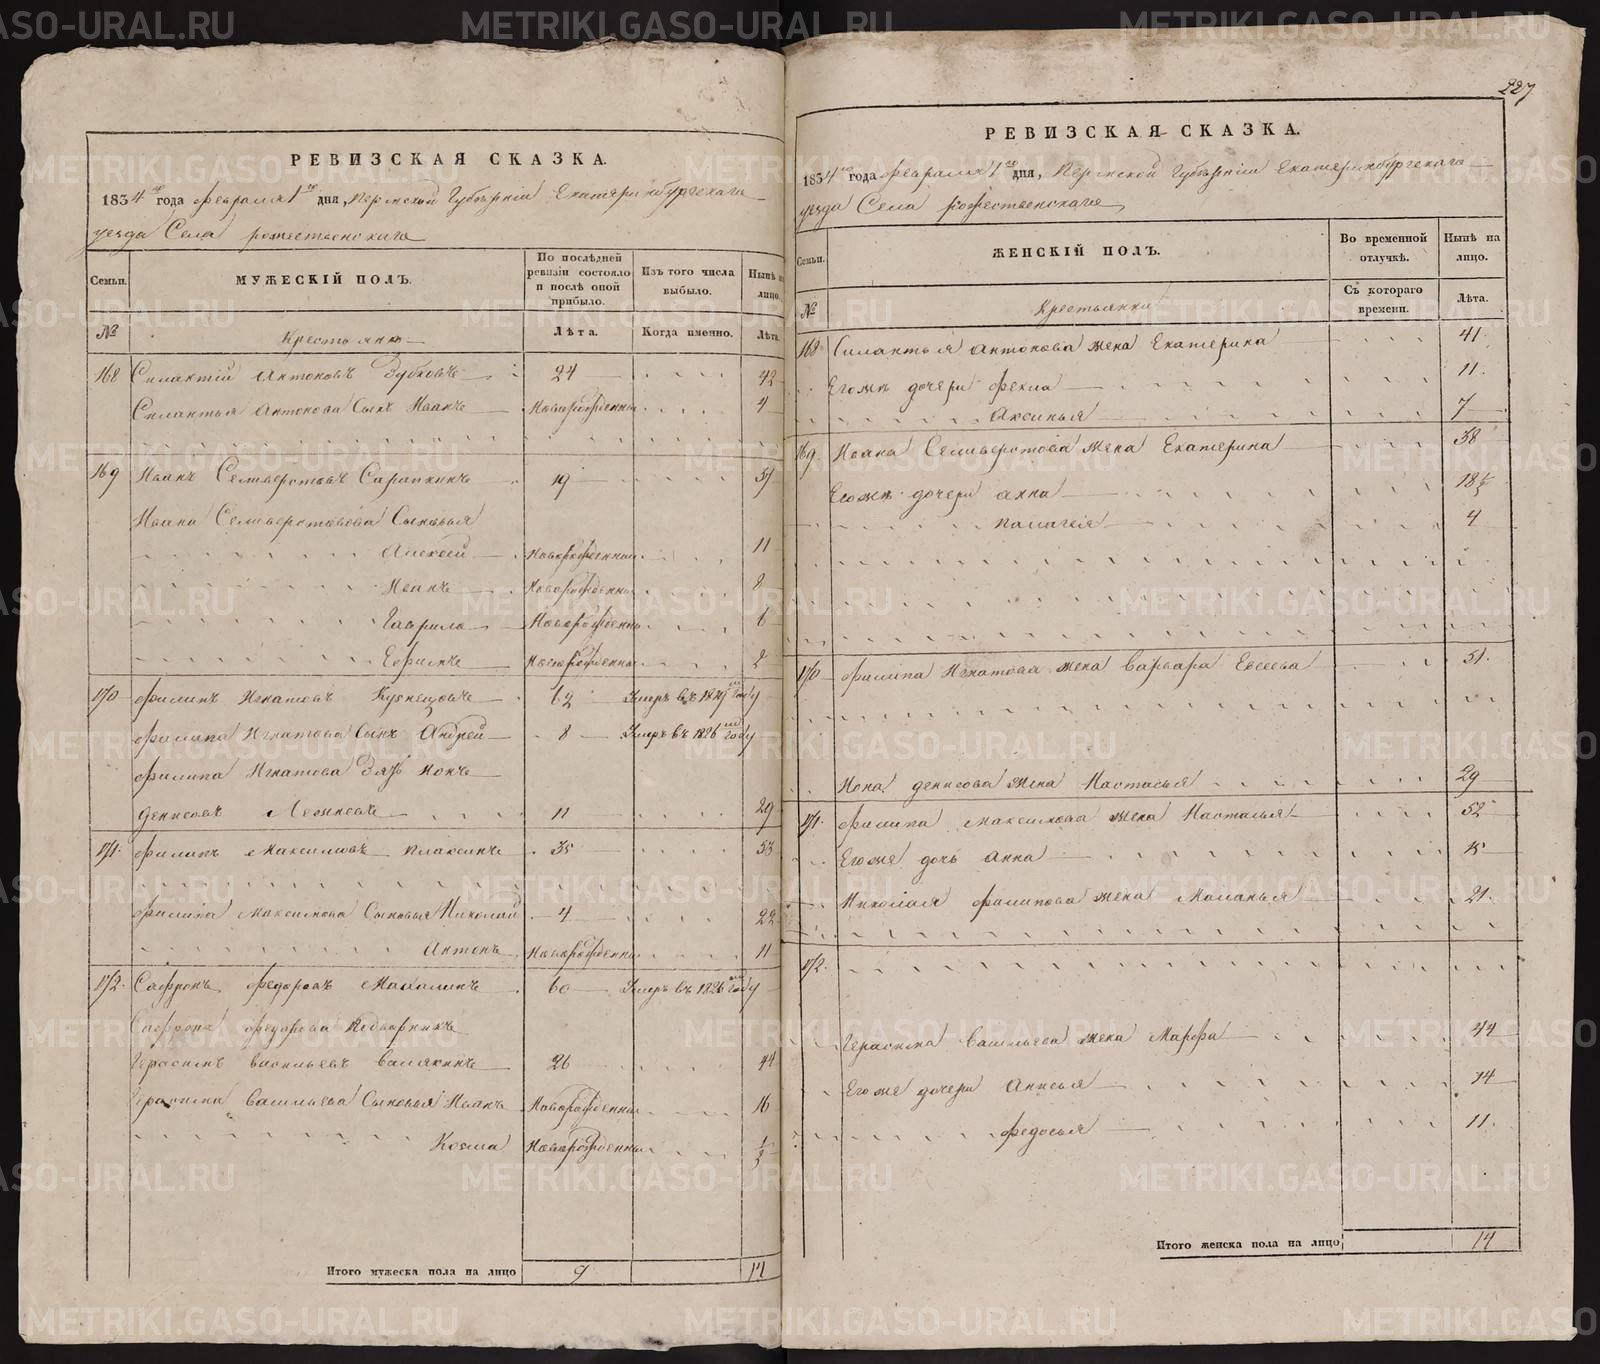 227
РЕВИЗСКАЯ СКАЗКА.
1834го года февраля 1го дня, Пермской Губерніи Екатеринбургскаго
уезда Села рожественскаго
Семьи.
МУЖЕСКІЙ ПОЛЪ.
По послѣдней ревизіи состояло и послѣ оной прибыло.
Изъ того числа выбыло.
Нынѣ на лицо.
№
Крестьяне
Лѣта.
Когда именно.
Лѣта
168 Силантій Антоновъ Зубковъ 24 42
Силантья Антонова Сынъ Иванъ Новорожденны 4
169 Иванъ Селиверстовъ Сарапкинъ 19
Ивана Сыновья
Алексей Новорожденны 11
Иванъ Новорожденны
Гаврило Новорожденны 6
Ефимъ Новорожденны 2
170 Филипъ Игнатовъ Кузнецовъ 62 Умръ въ 1829 году
Филипа Игнатова Сынъ Андрей 8 Умръ въ 1826 году
Филипа Игнатова Зять Нонъ
денисовъ 11 29
171 Филипъ Максимовъ Плаксинъ 35 53
Филипа Максимова Сыновья Николай 4 22
Антонъ Новорожденны 11
172 Сафронъ Федоровъ 60 Умръ въ 1826 году
Сафрона Федорова
Герасимъ васильевъ 26 44
Герасима васильева Сыновья Иванъ Новорожденны 16
Козма Новорожденны
Итого мужеска пола на лицо 9
РЕВИЗСКАЯ СКАЗКА.
1834го года февраля 1го дня, Пермской Губерніи Екатеринбургскаго
уезда Села рожественскаго
Семьи.
ЖЕНСКІЙ ПОЛЪ.
Во временной отлучкѣ.
Нынѣ на лицо.
№
Крестьянки
Съ котораго времени.
Лѣта.
168 Силантья антонова жена Екатерина 41
Егожъ дочери фекла 11
Аксинья 7
169 Ивана Селиверстова жена Екатерина 38
Егожъ дочери анна 18
палагея 4
170 Филипа Игнатова жена варвара Евсеева 51
Нона денисова жена Настасья 29
171 Филипа Максимова жена Настасья 52
Егоже дочь анна 15
Николая филипова жена Маланья 21
172
Герасима васильева жена Марфа 44
Егоже дочери Анисья 14
федосья 11
Итого женска пола на лицо 14
METRIKI.GASO-URAL.RU